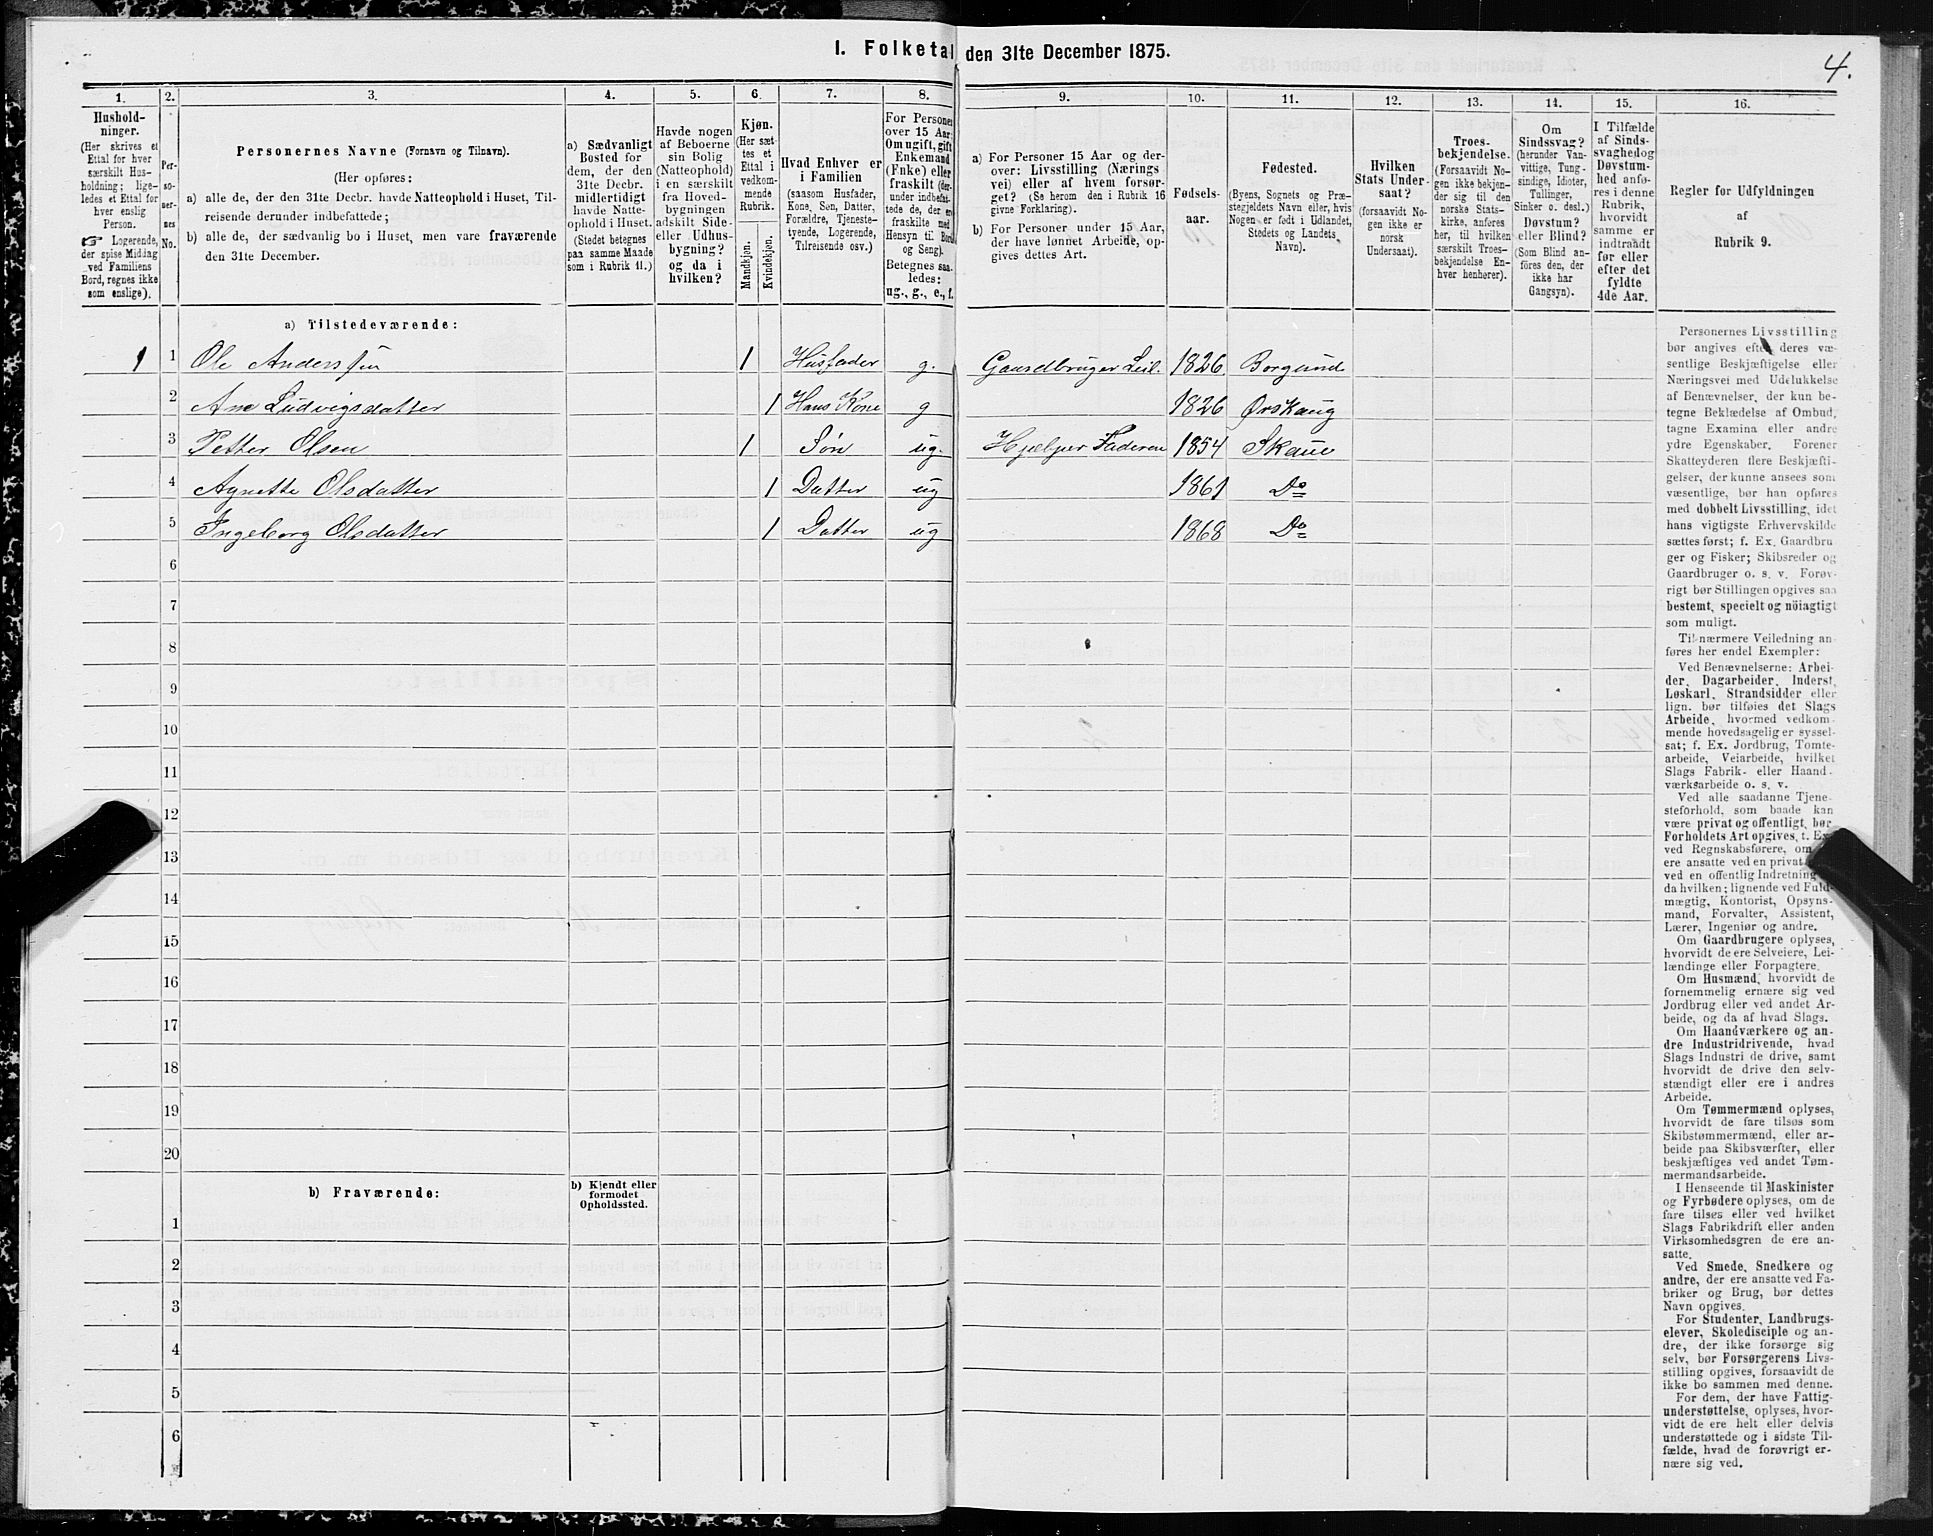 I. Folketal den 31te December 1875.
4.
1. 2. 3. 4. 5. 6. 7. 8. 9. 10. 11. 12. 13. 14. 15. 16.
Hushold-
ninger.
(Her skrives et
Ettal for hver
særskilt Hus-
holdning; lige-
ledes et Ettal for
hver enslig
Person.
Logerende,
der spise Middag
ved Familiens
Bord, regnes ikke
som enslige).
Per-
so-
ner-
nes
No.
Personernes Navne (Fornavn og Tilnavn).
(Her opføres:
a) alle de, der den 31te Decbr. havde Natteophold i Huset, Til-
reisende derunder indbefattede;
b) alle de, der sædvanlig bo i Huset, men vare fraværende
den 31te December.
a) Sædvanligt
Bosted for
dem, der den
31te Decbr.
midlertidigt
havde Natte-
ophold i Huset.
(Stedet betegnes
paa samme Maade
som i Rubrik 11.)
Havde nogen
af Beboerne
sin Bolig
(Natteophold)
i en særskilt
fra Hoved-
bygningen
adskilt Side-
eller Udhus-
bygning?
og da i
hvilken?
Kjøn.
(Her sæt-
tes et
Ettal i
vedkom-
mende
Rubrik.
Mandkjøn.
Kvindekjøn.
Hvad Enhver er
i Familien
(saasom Husfader,
Kone, Søn, Datter,
Forældre, Tjeneste-
tyende, Logerende,
Tilreisende osv.)
For Personer
over 15 Aar:
Om ugift, gift
Enkemand
(Enke) eller
fraskilt (der-
under indbefat-
tede de, der ere
fraskilte med
Hensyn til Bord
og Seng).
Betegnes saa-
ledes:
ug., g., e., f.
a) For Personer 15 Aar og der-
over: Livsstilling (Nærings-
vei) eller af hvem forsør-
get? (Se herom den i Rubrik 16
givne Forklaring).
b) For Personer under 15 Aar,
der have lønnet Arbeide, op-
gives dettes Art.
Fødsels-
aar.
Fødested.
(Byens, Sognets og Præ-
stegjeldets Navn eller, hvis
Nogen er født i Udlandet,
Stedets og Landets
Navn).
Hvilken
Stats Under-
saat?
(forsaavidt No-
gen ikke er
norsk
Undersaat).
Troes-
bekjendelse.
(Forsaavidt No-
gen ikke bekjen-
der sig til den
norske Stats-
kirke, anføres
her, til hvilken
særskilt Troes-
bekjendelse En-
hver henhører).
Om
Sindssvag?
(herunder Van-
vittige, Tung-
sindige, Idioter,
Tullinger,
Sinker o. desl.)
Døvstum?
eller Blind?
(Som Blind an-
føres den, der
ikke har
Gangsyn).
I Tilfælde
af Sinds-
svaghed og
Døvstum-
hed anfø-
res i denne
Rubrik,
hvorvidt
samme er
indtraadt
før eller
efter det
fyldte
4de Aar.
Regler for Udfyldningen
af
Rubrik 9.
a) Tilstedeværende:
1 1 Ole Anderssen 1 Husfader g. Gaardbruger Leil. 1826. Borgund
2 Ane Ludvigsdatter 1 Hans Kone g 1826 Ørskaug
3 Petter Olsen 1 Søn ug. Hjelper Faderen 1854 Skaue
4 Agnette Olsdatter 1 Datter ug 1861 Do
5 Ingeborg Olsdatter 1 Datter ug 1868 Do
6
7
8
9
10
11
12
13
14
15
16
17
18
19
20
b) Fraværende:
b) Kjendt eller
formodet
Opholdssted.
1
2
3
4
5
6
Personernes Livsstilling
bør angives efter deres væ-
sentlige Beskjæftigelse eller
Næringsvei med Udelukkelse
af Benævnelser, der kun be-
tegne Beklædelse af Ombud,
tagne Examina eller andre
ydre Egenskaber. Forener
Skatteyderen flere Beskjæfti-
gelser, der kunne ansees som
væsentlige, bør han opføres
med dobbelt Livsstilling, idet
hans vigtigste Erhvervskilde
sættes først; f. Ex. Gaardbru-
ger og Fisker; Skibsreder og
Gaardbruger o. s. v. Forøv-
rigt bør Stillingen opgives saa
bestemt, specielt og nöiagtigt
som muligt.
Til nærmere Veiledning an-
føres her endel Exempler:
Ved Benævnelserne: Arbei-
der, Dagarbeider, Inderst,
Løskarl, Strandsidder eller
lign. bør tilføies det Slags
Arbeide, hvormed vedkom-
mende hovedsagelig er syssel-
sat; f. Ex. Jordbrug, Tomte-
arbeide, Veiarbeide, hvilket
Slags Fabrik- eller Haand-
værksarbeide o. s. v.
Ved alle saadanne Tjene-
steforhold, som baade kan
være privat og offentligt, bør
Forholdets Art opgives, t. Ex.
ved Regnskabsførere, om
ere ansatte ved en privat
ved en offentlig Indretning
da hvilken; lignende ved Fuld-
mægtig, Kontorist, Opsyns-
mand, Forvalter, Assistent,
Lærer, Ingeniør og andre.
Om Gaardbrugere oplyses,
hvorvidt de ere Selveiere, Lei-
lændinge eller Forpagtere.
Om Husmænd, hvorvidt de
fornemmelig ernære sig ved
Jordbrug eller ved andet Ar-
beide, og da af hvad Slags.
Om Haandværkere og an-
dre Industridrivende, hvad
Slags Industri de drive, samt
hvorvidt de drive den selv-
stændigt eller ere i andres
Arbeide.
Om Tømmermænd oplyses,
hvorvidt de fare tilsøs som
Skibstømmermænd, eller ar-
beide paa Skibsværfter, eller
beskjæftiges ved andet Tøm-
mermandsarbeide.
I Henseende til Maskinister
og Fyrbødere oplyses, om de
fare tilses eller ved hvilket
Slags Fabrikdrift eller anden
Virksomhedsgren de ere an-
satte.
Ved Smede, Snedkere og
andre, der ere ansatte ved Fa-
briker og Brug, bør dettes
Navn opgives.
For Studenter, Landbrugs-
elever, Skoledisciple og an-
dre, der ikke forsørge sig
selv, bør Forsørgerens Livs-
stilling opgives, forsaavidt de
ikke bo sammen med denne.
For dem, der have Fattig-
understøttelse, oplyses, hvor-
vidt de ere helt eller delvis
understøttede og i sidste Til-
fælde, hvad de forøvrigt er-
nære sig ved.